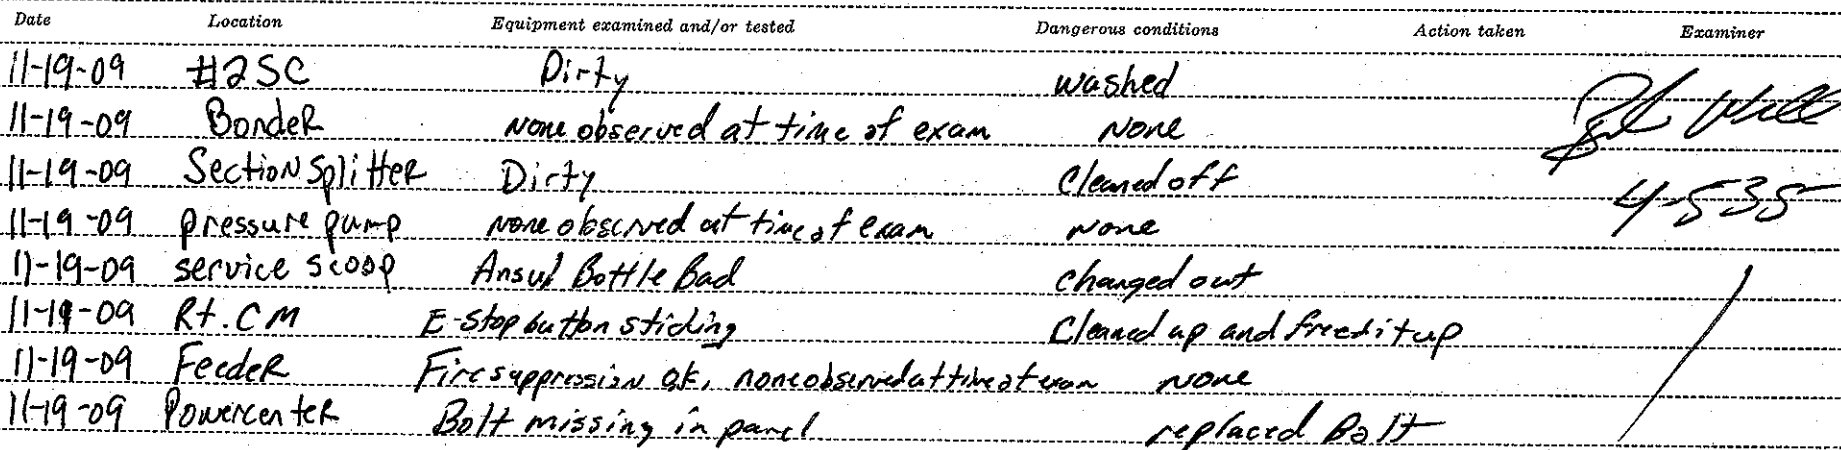 Date Location Equipment examined and/or tested Dangerous conditions Action taken Examiner
11-19-09 #2SC Dirty washed
11-19-09 Bonder none observed at time of exam none
11-19-09 Section Splitter Dirty Cleaned off
11-19-09 pressure pump none observed at time of exam none 4-535
11-19-09 service scoop Ansul Bottle Bad changed out
11-19-09 Rt. CM E-stop button sticking Cleaned up and freed it up
11-19-09 Feeder Fire suppression ok, none observed at time of exam none
11-19-09 Powercenter Bolt missing in panel replaced Bolt